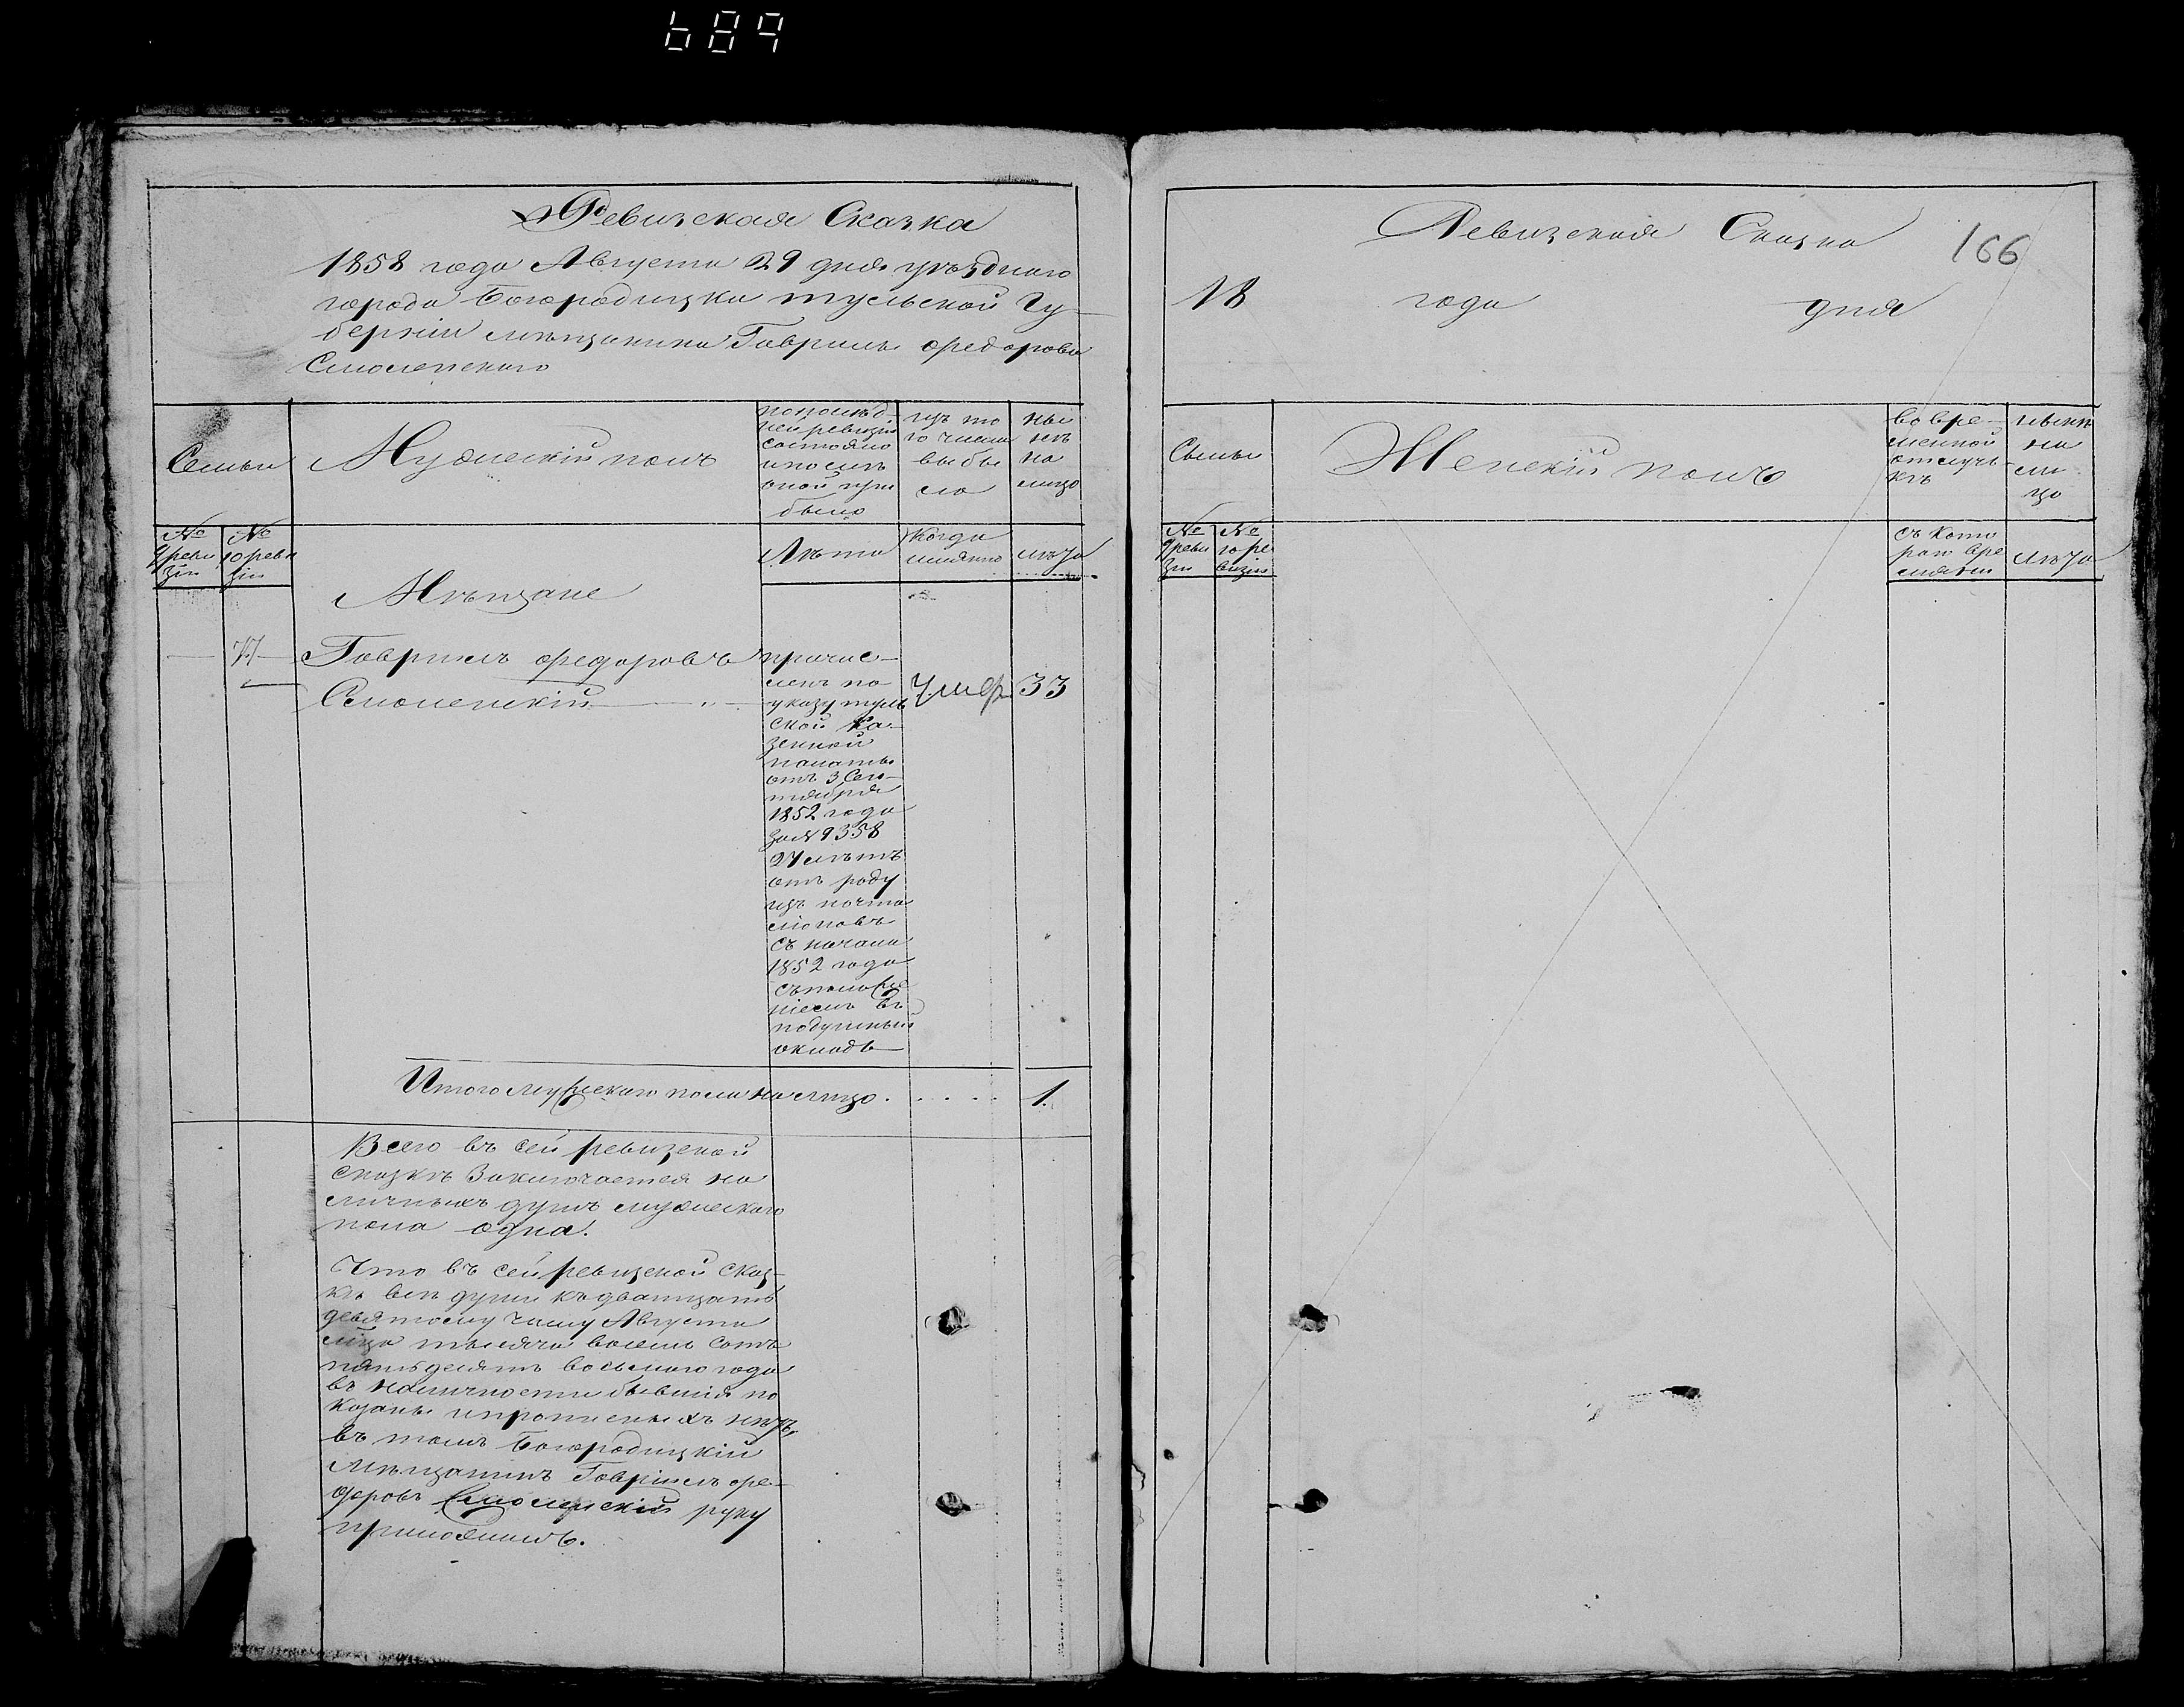 689
Ревизская Сказка
1858 года Августа 29 дня уѣзднаго
города Богородицка тульской Гу-
берніи мѣщанина Гаврилы Федорова
Смоленскаго
Семьи
Мужескій полъ
попослѣд-
ней ревизіи
состояло
и после
оной при
было
изъ то
го числа
выбы
ло
ны
нѣ
на
лицо
№
9 реви
зіи
№
10 реви
зіи
Лѣта
Когда
имянно
лѣта
Мѣщане
Гавриилъ Федоровъ
Смоленскій
причис-
ленъ по
указу туль
ской Ка-
зенной
палаты
отъ 3 Сен-
тября
1852 года
за № 9358
27 лѣтъ
отъ роду
изъ почта
ліоновъ
съ начала
1852 года
съ положе
ніемъ въ
подушный
окладъ
Умер
33
Итого мужескаго пола на лицо . . . . .
1.
Всего въ сей ревизской
сказкѣ Заключается на
личныхъ душъ мужескаго
пола одна.
Что въ сей ревизской сказ-
кѣ всѣ души къ дватцать
девятому числу Августа
мца тысяча восемь сотъ
пятьдесятъ восьмаго года
въ наличности бывшія по
казаны и прописныхъ нѣтъ,
въ томъ Богородицкій
Мѣщанинъ Гавріилъ Фе-
доровъ Смоленскій руку
приложилъ.
Ревизская Сказка
166
18 года дня
Семьи
Женскій полъ
во вре-
менной
отлуч
кѣ
нынѣ
на
ли
цо
№
9 реви
зіи
№
10 ре
визіи
съ кото
раго вре
мяни
лѣта